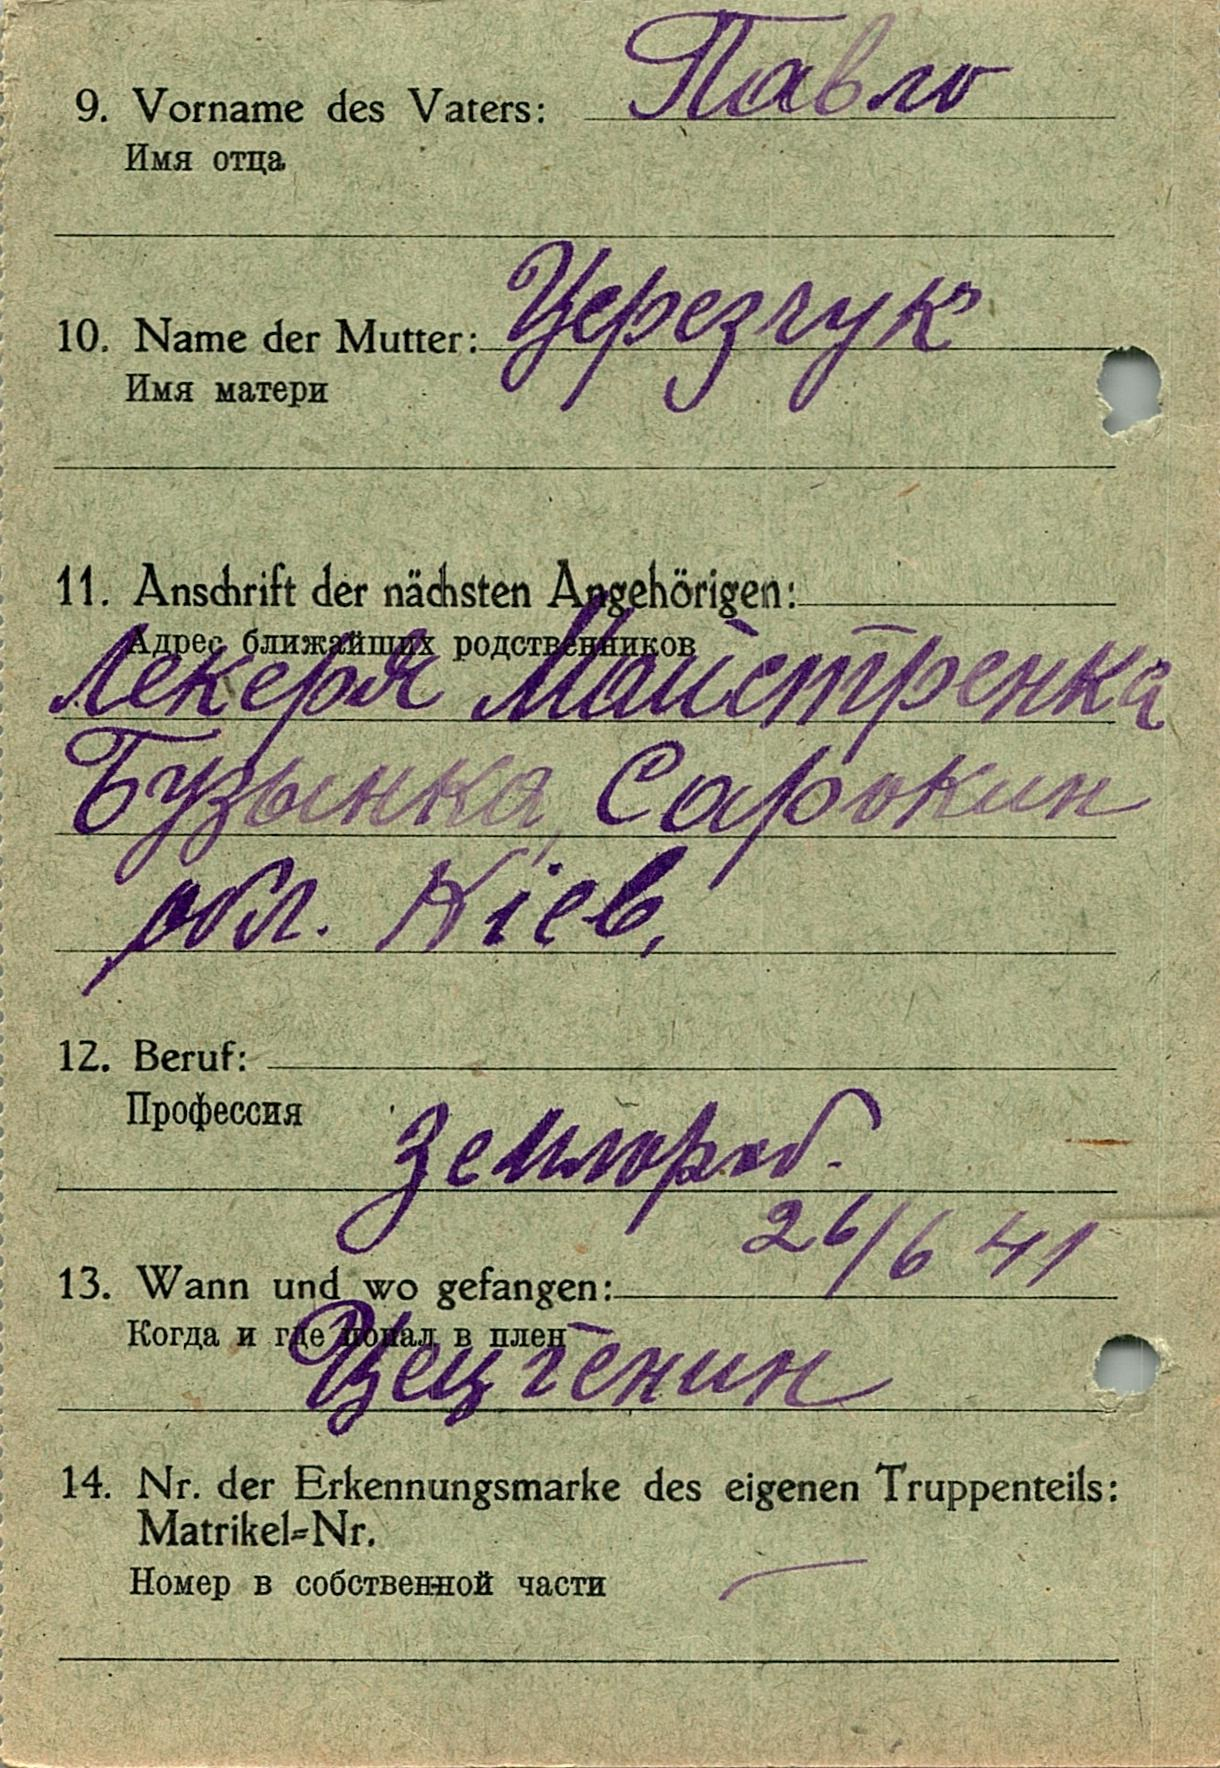 9. Vorname des Vaters: Павло
Имя отца
10. Name der Mutter: Церезчук
Имя матери
11. Anschrift der nächsten Angehörigen:
Адрес ближайших родственников
Лекеря Майстренка
Бузынка, Сарокин
обл. Кіев,
12. Beruf:
Профессия
Землороб.
26/6 41
13. Wann und wo gefangen:
Когда и где попал в плен
Цецгенин
14. Nr. der Erkennungsmarke des eigenen Truppenteils:
Matrikel=Nr.
Номер в собственной части